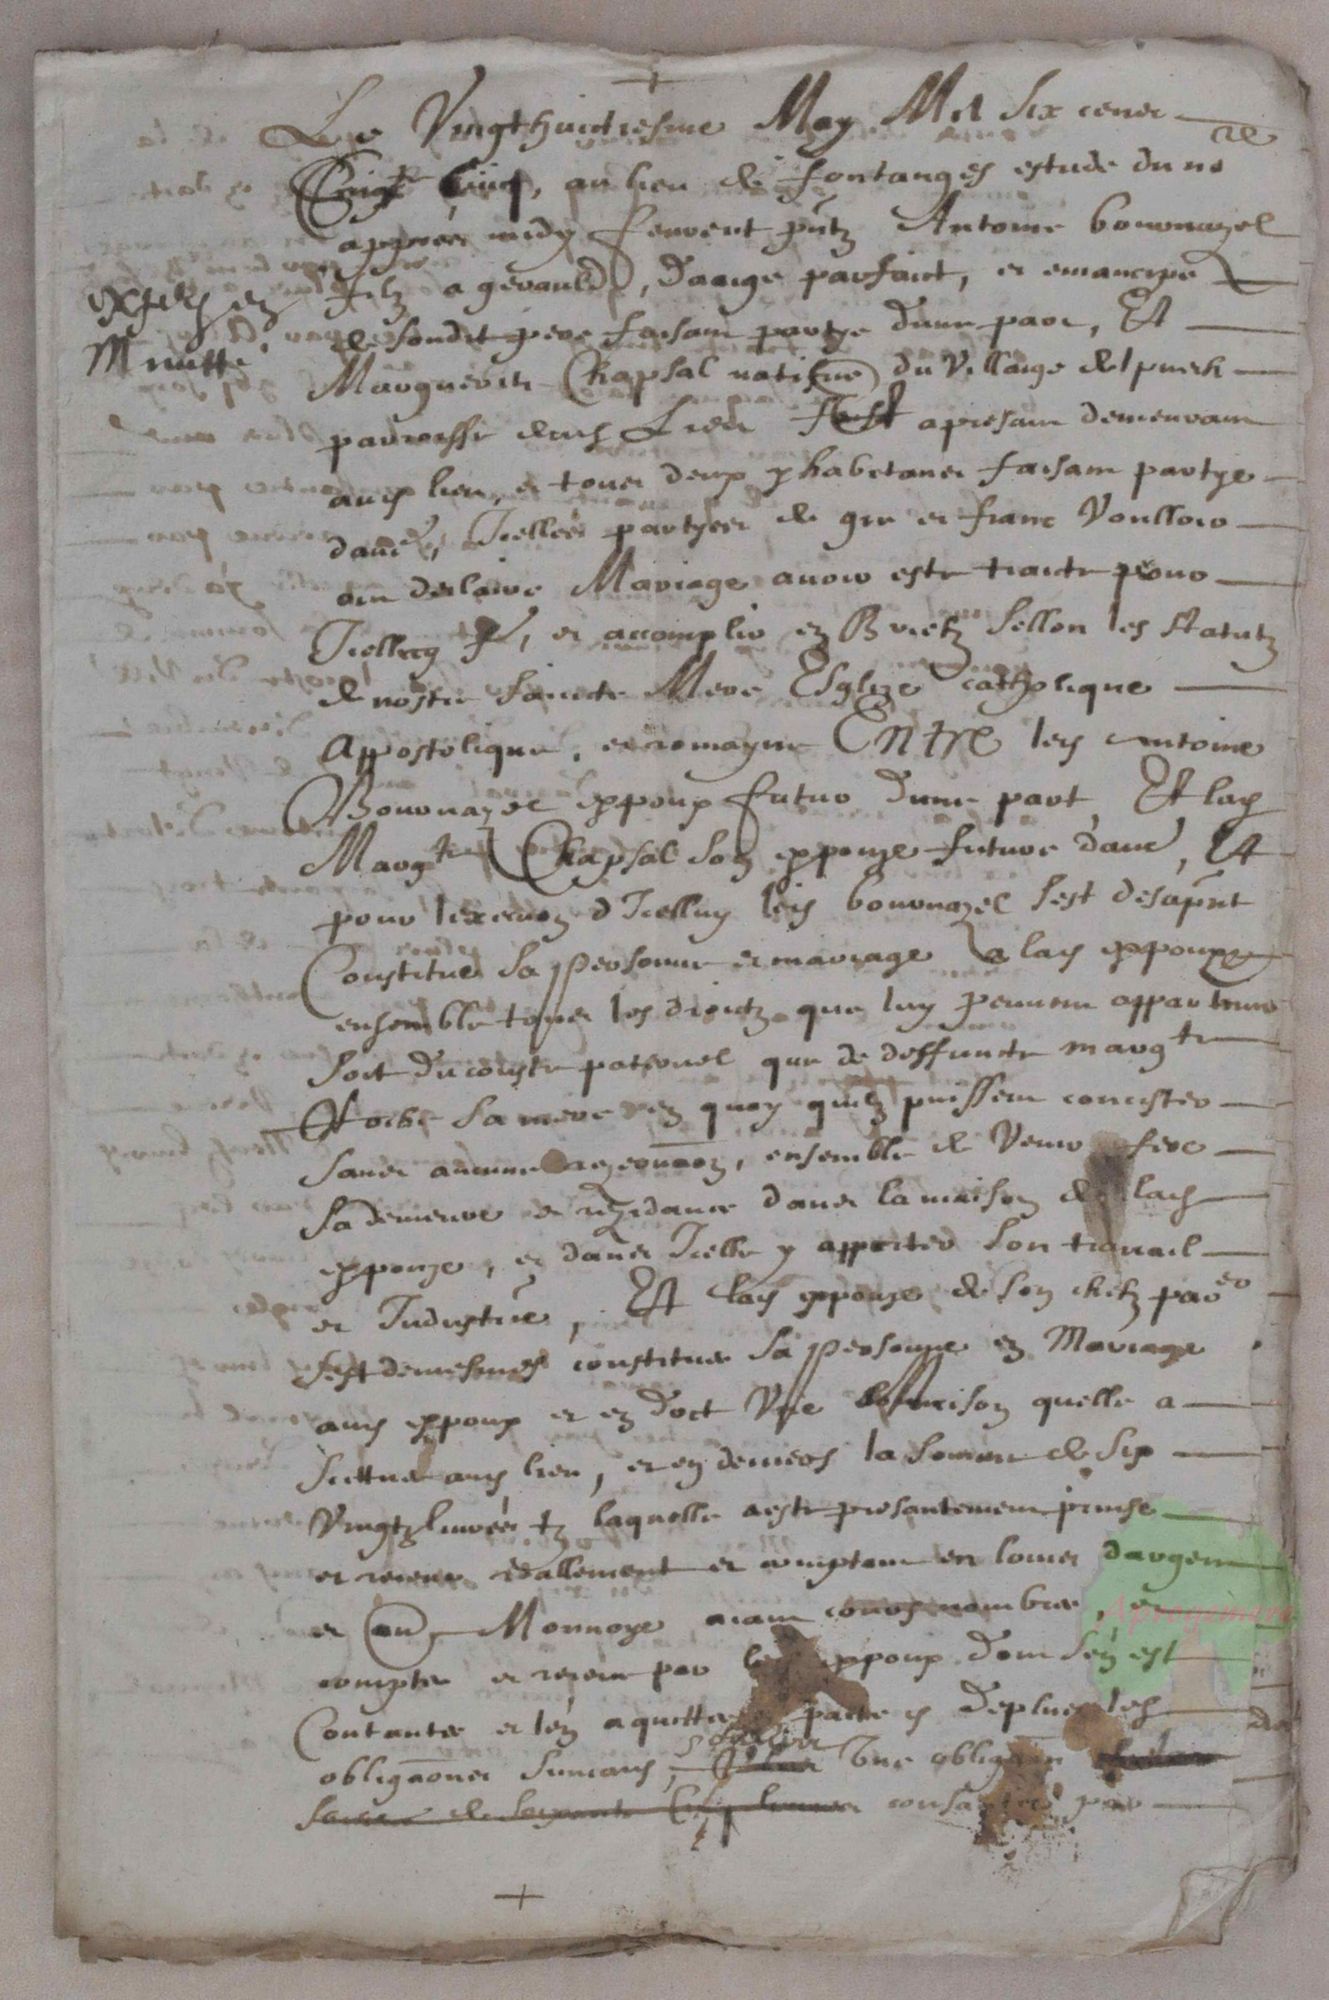 Le Vingthuictiesme May Mil six cens
Cinq, au lieu de fontanges estude du no re
appres midy feurent pntz Antoine bouonazel
filz a gerauld, daaige parfaict, et emancipe
Expedie en
Minutte
de sondit pere faisam partye dune part, Et
Marguerite Chapsal natifve du Villaige del puech
parroisse dud Lieu apresam demeuram
aud lieu, et tous deux y habitans faisam partye
daue, Icelles partyes de gre et franc Voulloir
on desclaire Mariage avoir este traicte pour
Icelluy et accomplir en Brietz sellon les statutz
de nostre saincte Mere Esglize catholique
Appostolique, et romayne Entre led Antoine
Bouonazel espoux futur dune part Et lad
Margte Chapsal son espouze future daue, Et
pour d Icelluy led bouonazel sest desapnt
Constitue sa personne et mariage a lad espouze
ensemble tous les droictz que luy peuvem appartenir
soit du couste paternel que de deffuncte margte
sa mere en quoy quilz puissem concister
sans aucune, ensemble de Venir fere
sa demeure et rezidance dans la maison de lad
espouze, et dans Icelle y apporter son travail
et Industrie, Et lad espouze de son chefz parer
sest de mesmes constitue sa personne en Mariage
aud espoux et en doct Vne maison quelle a
scittuee aud lieu, et en deniers la somme de six
Vingtz livres tz laquelle a este presantement prinse
et receue reallement et comptam en louis dargem
et au Monnoye aiam cours nombree, et
comptee et receue par led espoux dom sen est
Contante et len a quitte pacte deplus les
obligaons suivans, Vne obligaon
de soixante Cinq livres consantie par
Aprogemere